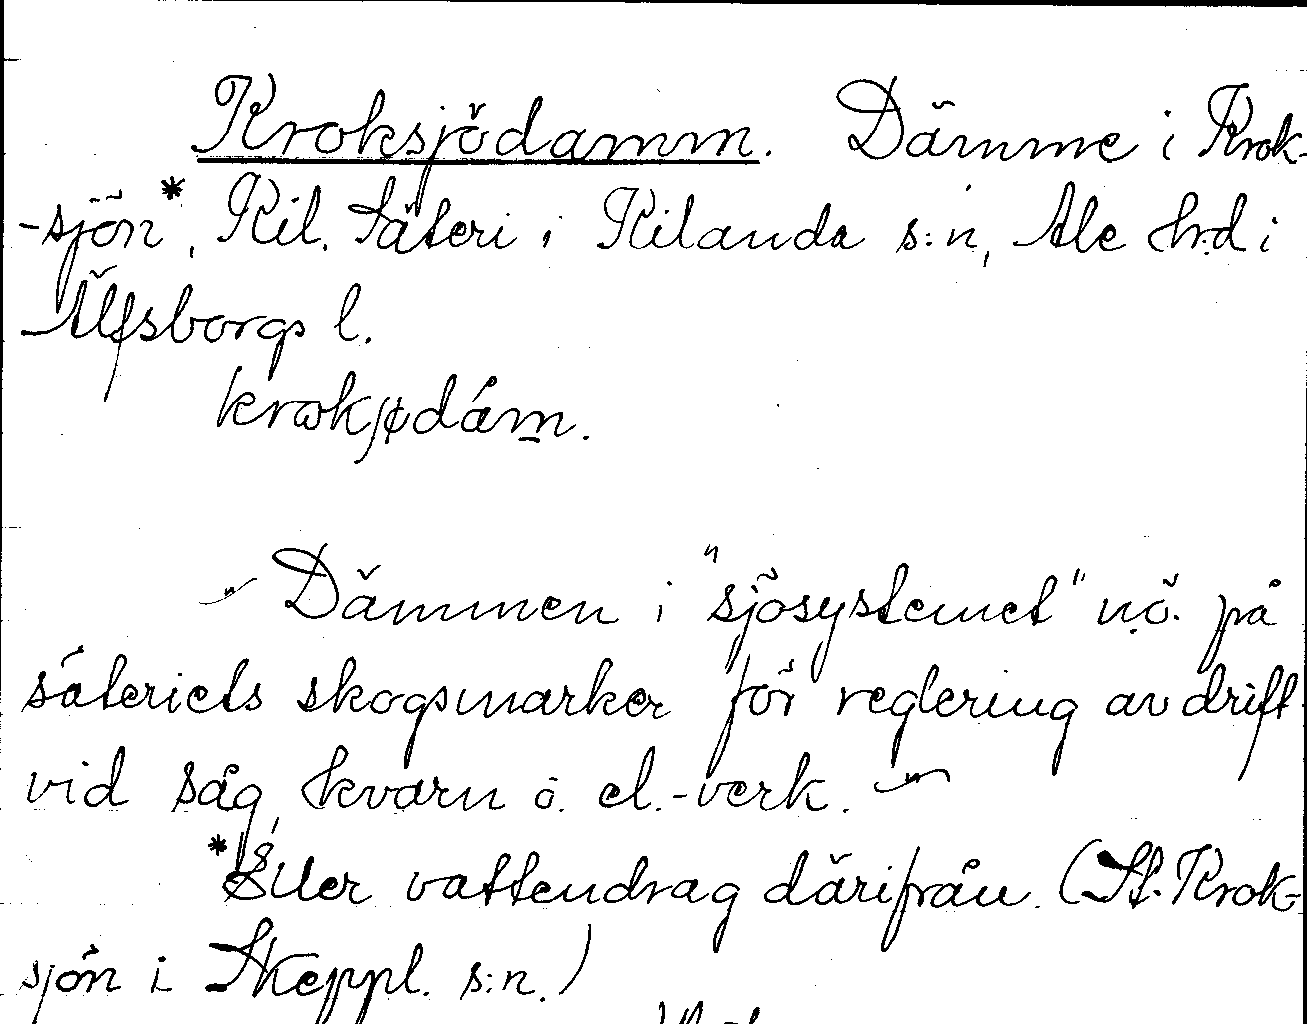 Kroksjödamm. Dämme i Krok-
-sjön*, Kil. Säteri i Kilanda s:n, Ale hrd i
Älfsborgs l.
krokʃødám.
~ Dämmen i "sjösystemet" n.ö. på
säteriets skogsmarker för reglering av drift
vid såg, kvarn o. el.-verk. ~
*Eller vattendrag därifrån. (St. Krok-
sjön i Skeppl. s:n.)